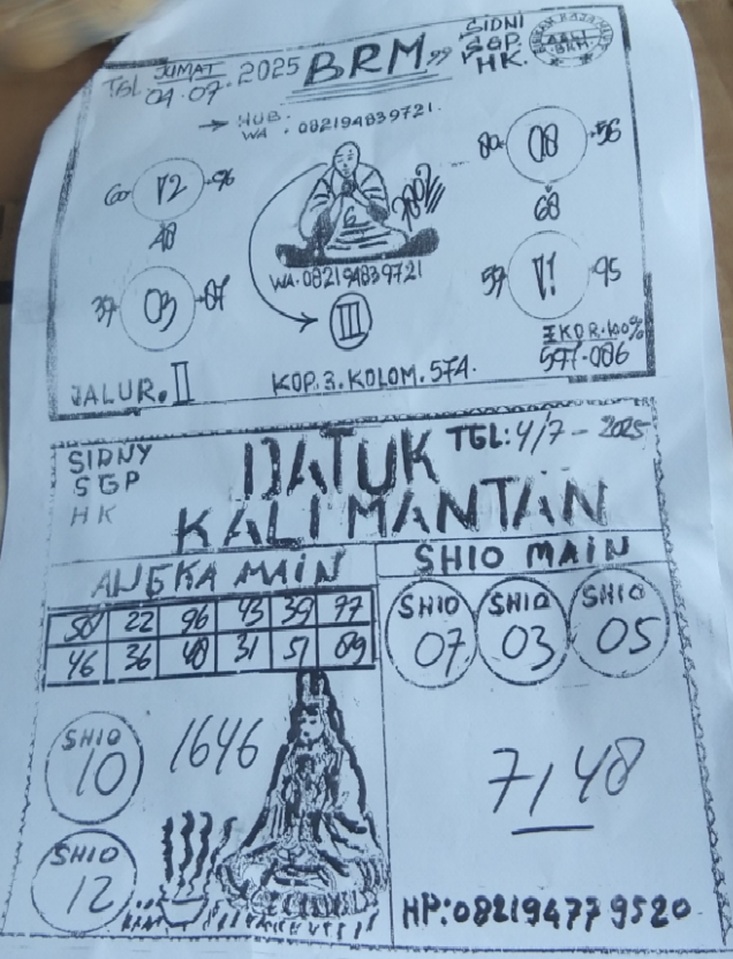 TGL JUMAT 04.07.2025
BRM,,
SIDNI
SGP.
HK.
HUB.
WA. 082194839721.
60 12 96
48
80 08 56
68
WA.082194839721
39 03 07
III
59 11 95
EKOR.100%
597-086
JALUR. II
KOP.3.KOLOM.574.
SIDNY
SGP
HK
DATUK
KALIMANTAN
TGL: 4/7-2025
ANGKA MAIN
22 96 43 39 77
46 36 48 31 51 89
SHIO MAIN
SHIO 07
SHIO 03
SHIO 05
SHIO 10
1646
7/48
SHIO 12
HP:082194779520